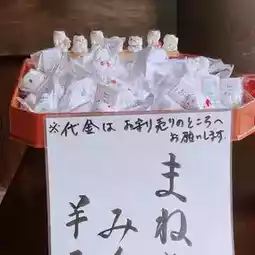 ※代金はお守り売りのところへ
お願いします。
まね
み
羊